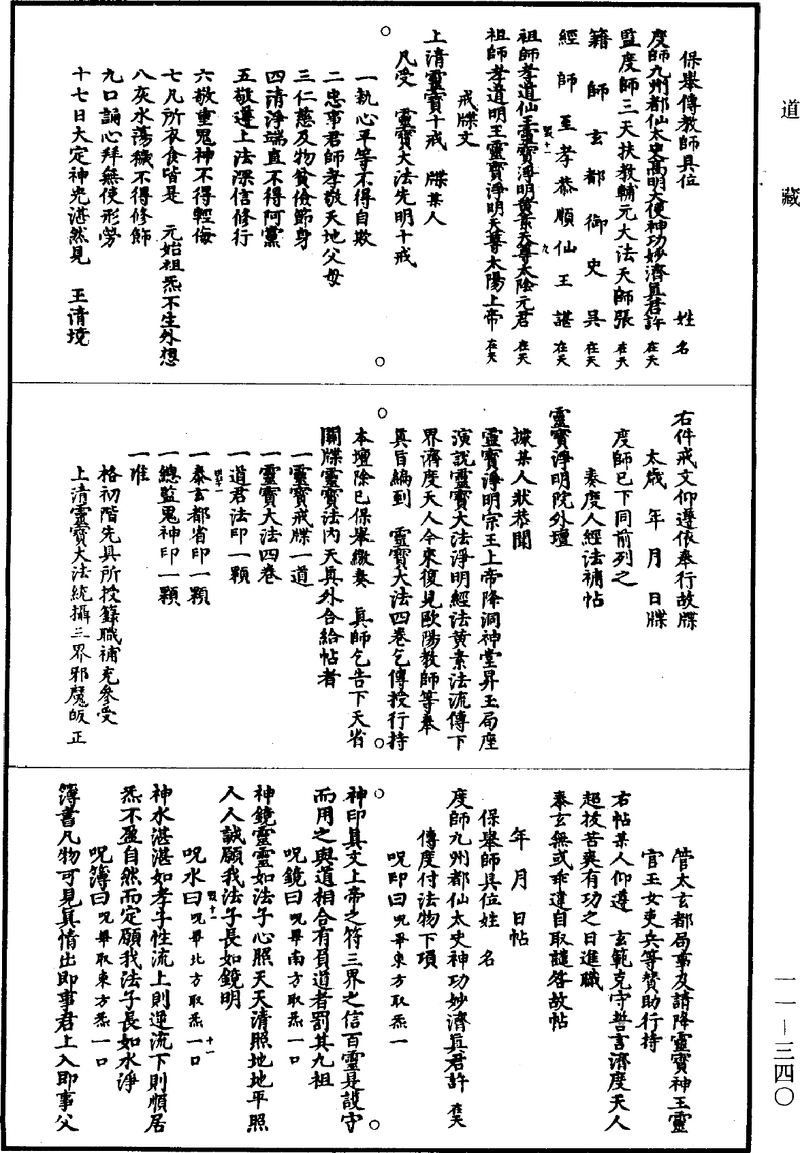 道藏
保舉傳教師具位　姓　名
度師九州都仙太史高明大使神功妙濟眞君許　在天
監度師三天扶教輔元大法天師張　在天
籍師玄都御史吳　在天
經師至孝恭順仙王諶　在天
祖師孝道仙王靈寶淨明黄素天尊太陰元君　在天
祖師孝道明王靈寶淨明天尊太陽上帝　在天
戒牒文
上清靈寶十戒　牒某人
凡受　靈寶大法先明十戒
一執心平等不得自欺
二忠事君師孝敬天地父母
三仁慈及物貧儉節身
四清淨端直不得阿黨
五敬遵上法深信修行
六敬重鬼神不得輕侮
七凡所衣食皆是　元始祖炁不生外想
八灰水蕩穢不得修飾
九口誦心拜無使形勞
十七日大定神光湛然見　玉清境
右件戒文仰遵依奉行故牒
太歲　年　月　日牒
度師已下同前列之
奏度人經法補帖
靈寶淨明院外壇
據某人狀恭聞
靈寶淨明宗王上帝降洞神堂昇玉局座
演說靈寶大法淨明經法黄素法流傳下
界濟度天人今來復見歐陽教師等奉
眞旨編到　靈寶大法四卷乞傳授行持
本壇除已保舉繳奏　眞師乞告下天省
關牒靈寶法内天眞外合給帖者
一靈寶戒牒一道
一靈寶大法四卷
一道君法印一顆
一泰玄都省印一顆
一總監鬼神印一顆
一准
格初階先具所授籙職補充參受
上清靈寶大法統攝三界邪魔皈正
管太玄都局事及請降靈寶神王靈
官玉女吏兵等贊助行持
右帖某人仰遵　玄範克守誓言濟度天人
超拔苦爽有功之日進職
泰玄無或乖違自取譴咎故帖
年　月　日帖
保舉師具位姓　名
度師九州都仙太史神功妙濟眞君許　在天
傳度付法物下項
呪印曰　呪畢東方取炁一
神印眞文上帝之符三界之信百靈是設守
而用之與道相合有負道者罰其九祖
呪鏡曰　呪畢南方取炁一口
神鏡靈靈如法子心照天天清照地地平照
人人誠願我法子長如鏡明
呪水曰　呪畢北方取炁一口
神水湛湛如孝子性流上則逆流下則順居
炁不盈自然而定願我法子長如水淨
呪簿曰　呪畢取東方炁一口
簿書凡物可見眞情出即事君上入即事父
一一－三四〇